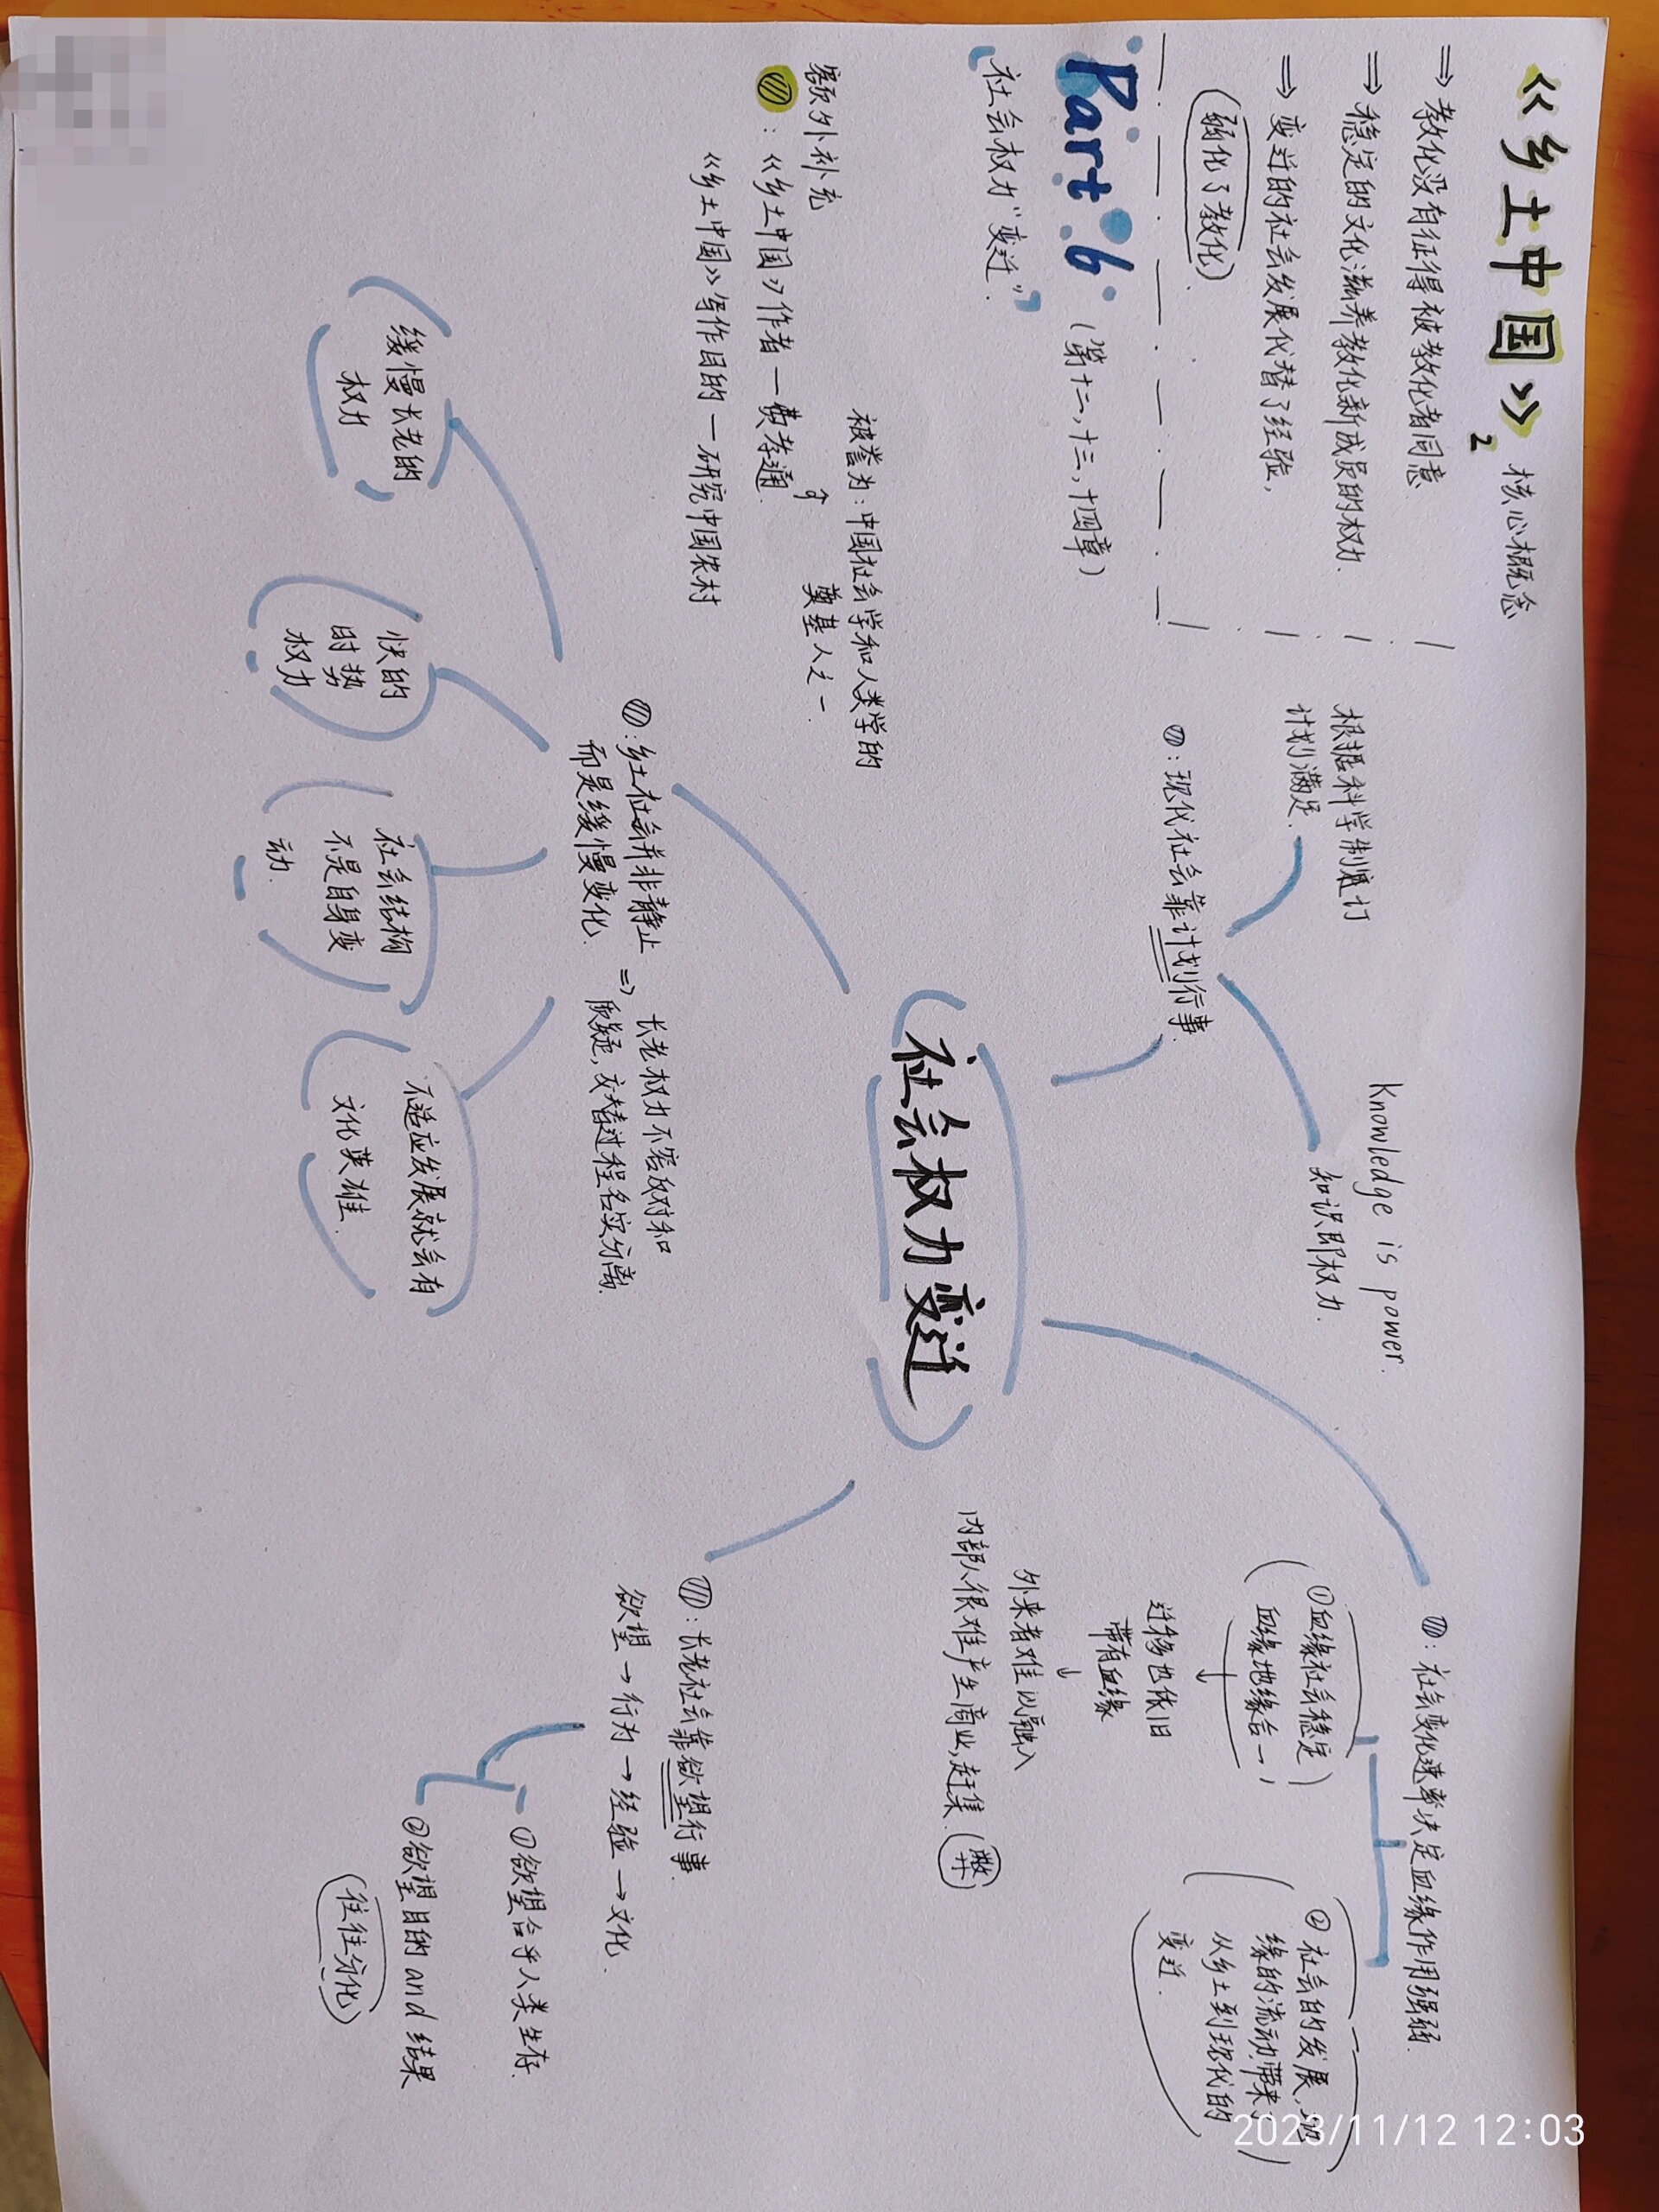 《乡土中国》2 核心概念
⇒ 教化没有征得被教化者同意
⇒ 稳定的文化滋养教化新成员的权力.
⇒ 变迁的社会发展代替了经验,
(弱化了教化)
Part 6. (第十二,十三,十四章)
“社会权力”变迁.”
被誉为:中国社会学和人类学的
奠基人之一.
额外补充
:《乡土中国》作者—费孝通.
《乡土中国》写作目的—研究中国农村
社会权力变迁
Knowledge is power.
知识即权力.
根据科学制订
计划满足.
:现代社会靠计划行事.
:社会变化速率决定血缘作用强弱.
①血缘社会稳定
血缘地缘合一
迁移也依旧
带有血缘
↓
外来者难以融入
内部人很难产生商业,赶集.(弊)
②社会的发展,地
缘的流动带来了
从乡土到现代的
变迁.
:乡土社会并非静止
而是缓慢变化.
⇒ 长老权力不容敌对和
质疑,交替过程名实分离.
缓慢长老的
权力
快的
时势
权力
社会结构
不是自身变
动.
不适应发展就会有
文化英雄.
:长老社会靠欲望行事.
欲望→行为→经验→文化.
①欲望合乎人类生存.
②欲望目的 and 结果
(往往分化)
2023/11/12 12:03